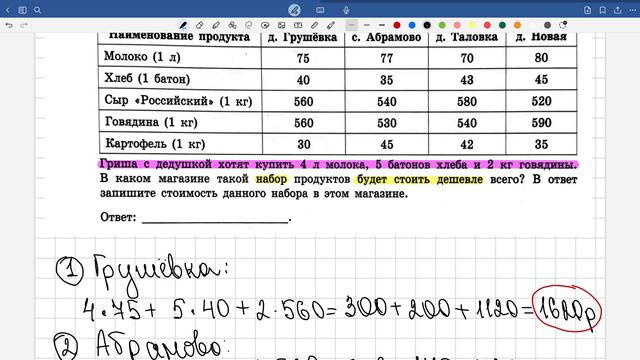 Наименование продукта д. Грушёвка с. Абрамово д. Таловка д. Новая
Молоко (1 л) 75 77 70 80
Хлеб (1 батон) 40 35 43 45
Сыр «Российский» (1 кг) 560 540 580 520
Говядина (1 кг) 560 530 540 590
Картофель (1 кг) 30 45 42 35
Гриша с дедушкой хотят купить 4 л молока, 5 батонов хлеба и 2 кг говядины.
В каком магазине такой набор продуктов будет стоить дешевле всего? В ответ
запишите стоимость данного набора в этом магазине.
Ответ: ____________________.
① Грушёвка:
4·75 + 5·40 + 2·560 = 300 + 200 + 1120 = 1620р
② Абрамово: